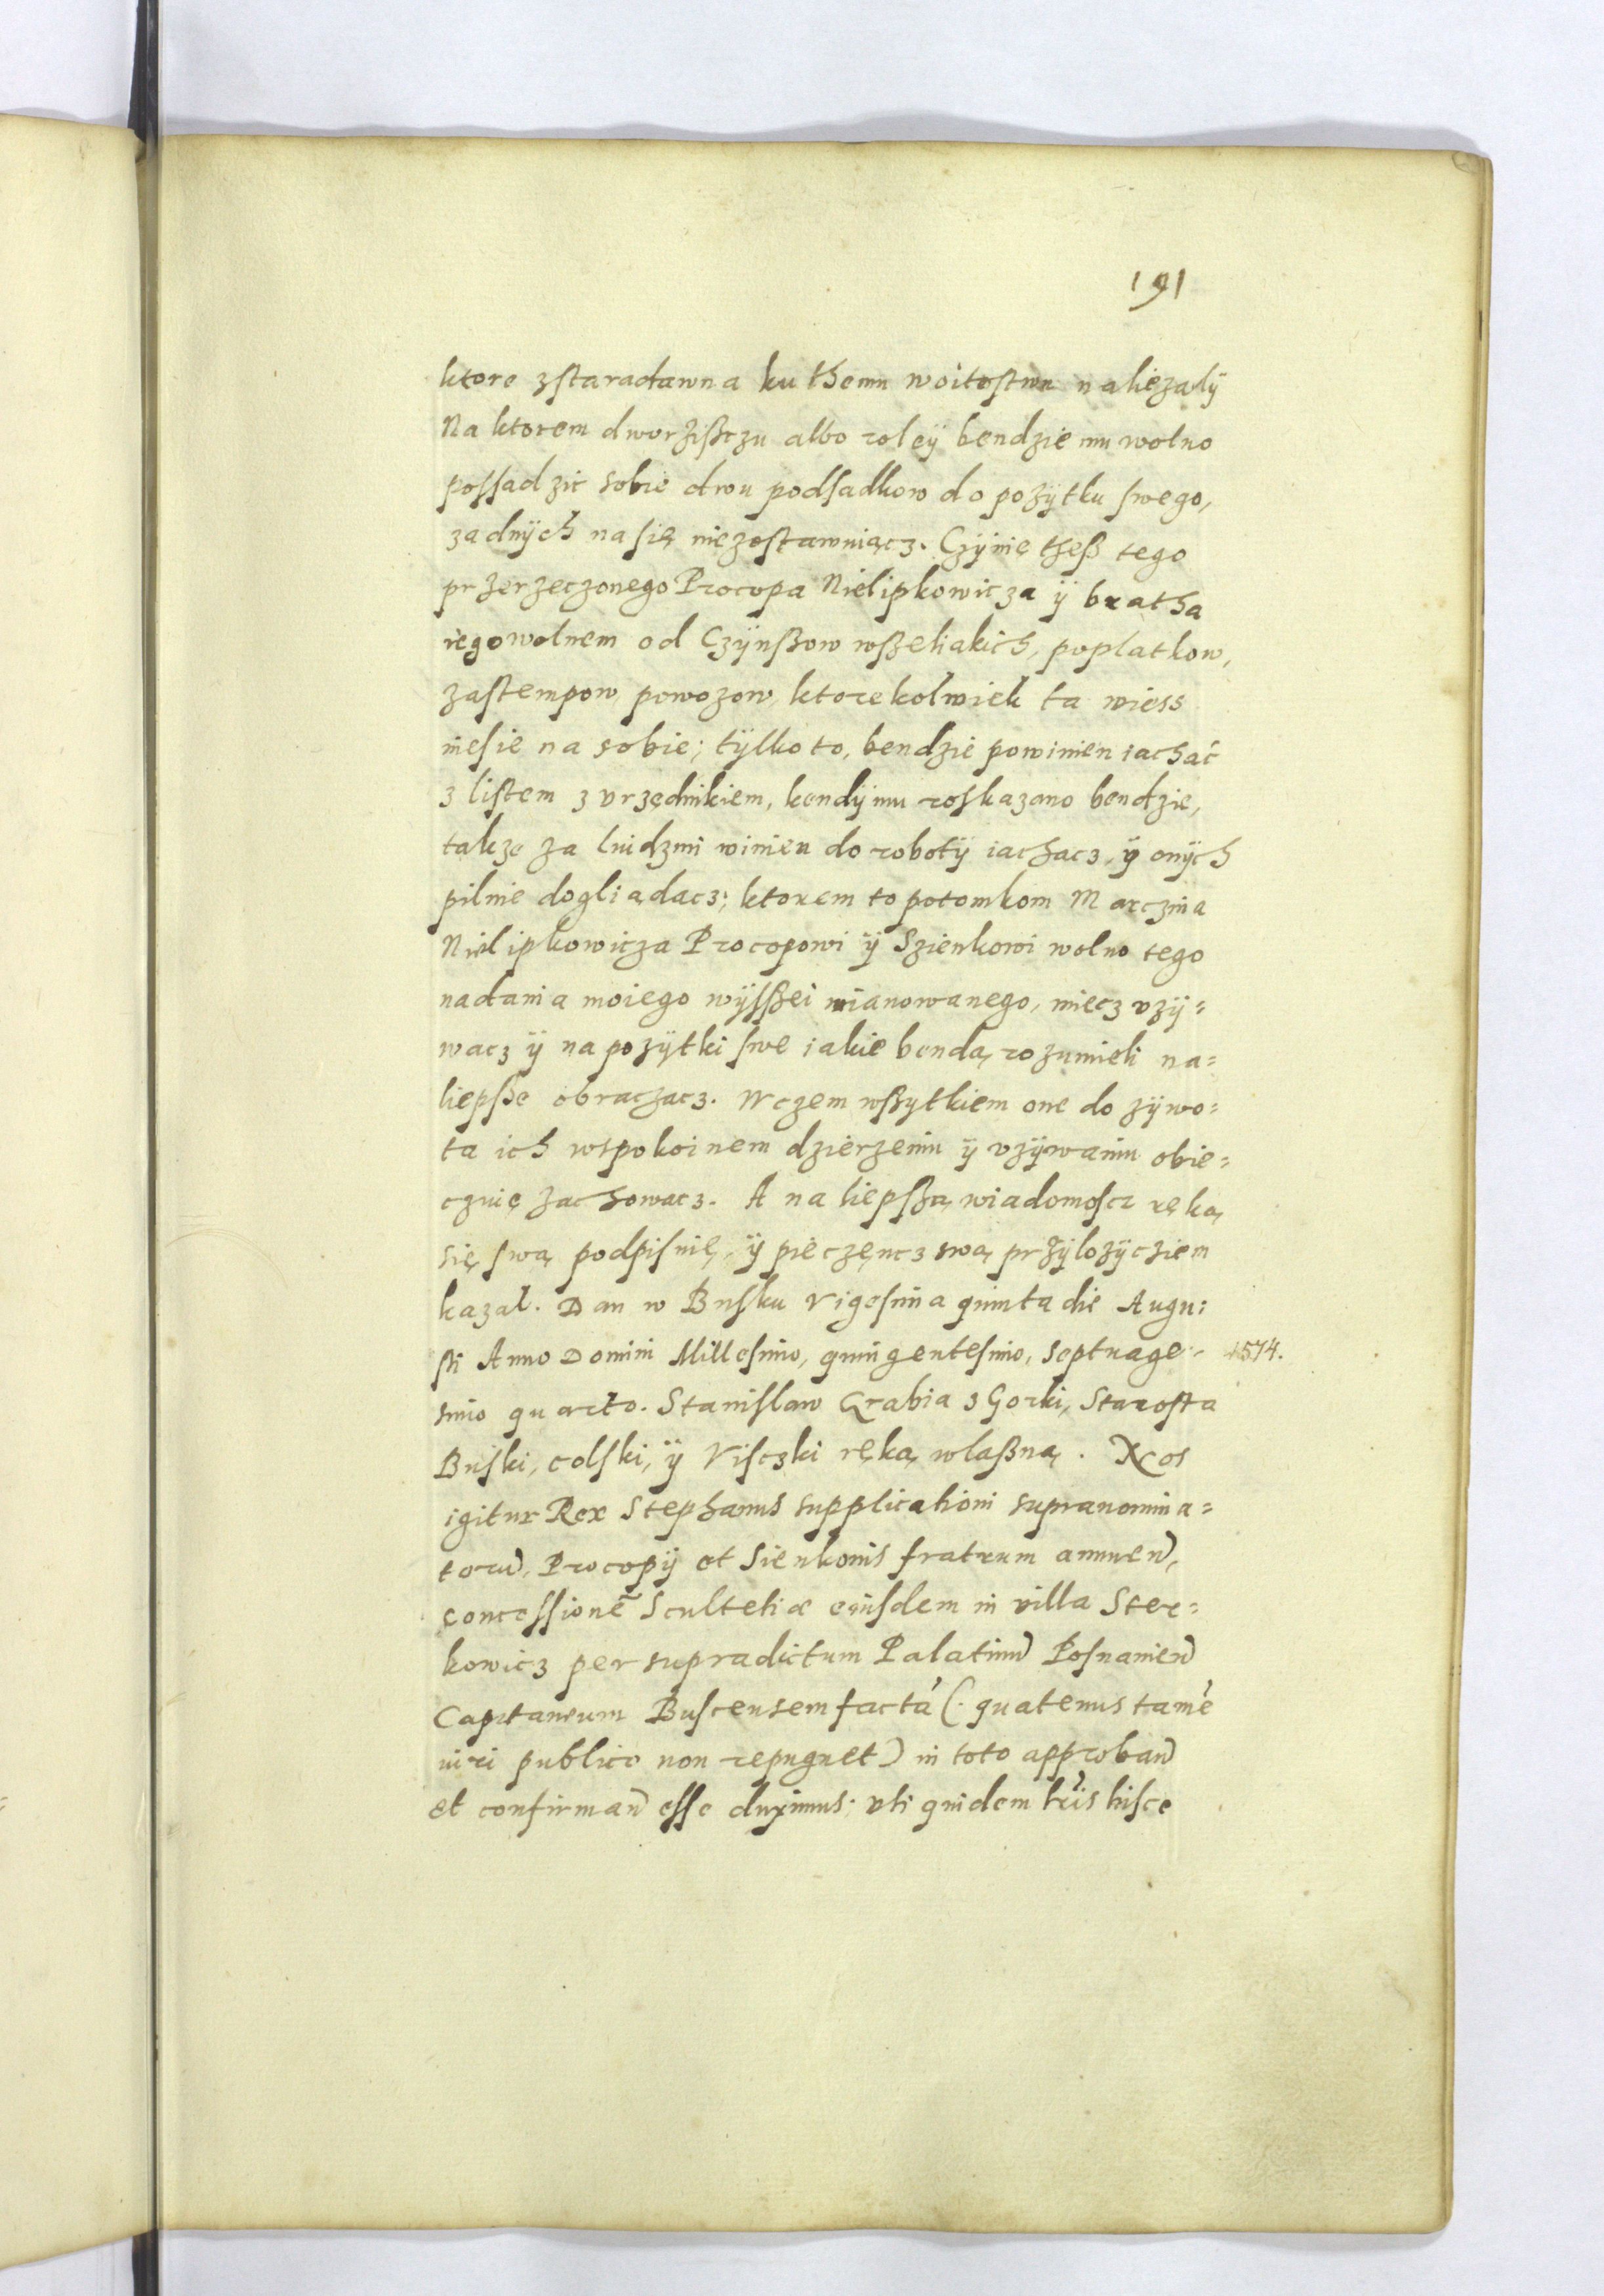 191
ktore zstaradawna ku themu woitostwu należalÿ
Na ktorem dworzißczu albo roleÿ bendzie mu wolno
possadzic sobie dwu podsadkow do pożÿtku swego,
zadnÿch na się niezostawuiącz. Czÿnie theß tego
przerzeczonego Procopa Nielipkowicza ÿ bratha
iego wolnem od Czÿnßow wßeliakich, poplatkow,
zastempow powozow, ktorekolwiek ta wiess
niesie na sobie; tÿlko to, bendzie powinien iachać
z listem z vrzędnikiem, kendÿ mu roskazano bendzie,
takze za ludzmi winien do robotÿ iachacz, ÿ onÿch
pilnie dogliądacz; ktorem to potomkom Marczina
Nielipkowicza Procopowi ÿ Szienkowi wolno tego
nadania moiego wÿsßei mianowanego, miecz vzÿ=
wacz ÿ na pozÿtki swe iakie bendą, rozumieli na=
liepße obraczacz. W czem wßytkiem one do zÿwo=
ta ich wspokoinem dzierzeniu ÿ vzÿwaniu obie=
cznię zachowacz. A na liepßą, wiadomoscz ręką,
się swą podpisnię, ÿ pieczęncz swą przÿlozÿcziem
kazal. Dan w Busku Vigesima quinta die Augu:
sti Anno Domini Millesimo, quingentesimo, septuage- 1574.
simo quarto. Stanislaw Grabia z Gorki, Starosta
Buski, colski, ÿ Visczki ręką wlaßną. Nos
igitur Rex Stephanus supplicationi supranomina=
toru, Procopÿ et Sienkonis fratrum annuen,
concessionē Scultetiæ eiusdem in villa Ster=
kowicz per supradictum Palatinu Posnanien
Capitaneum Buscensem factá (. quatenus tamē
iuri publico non repugnet) in toto approban
et confirman esse duximus; vti quidem lris hisce